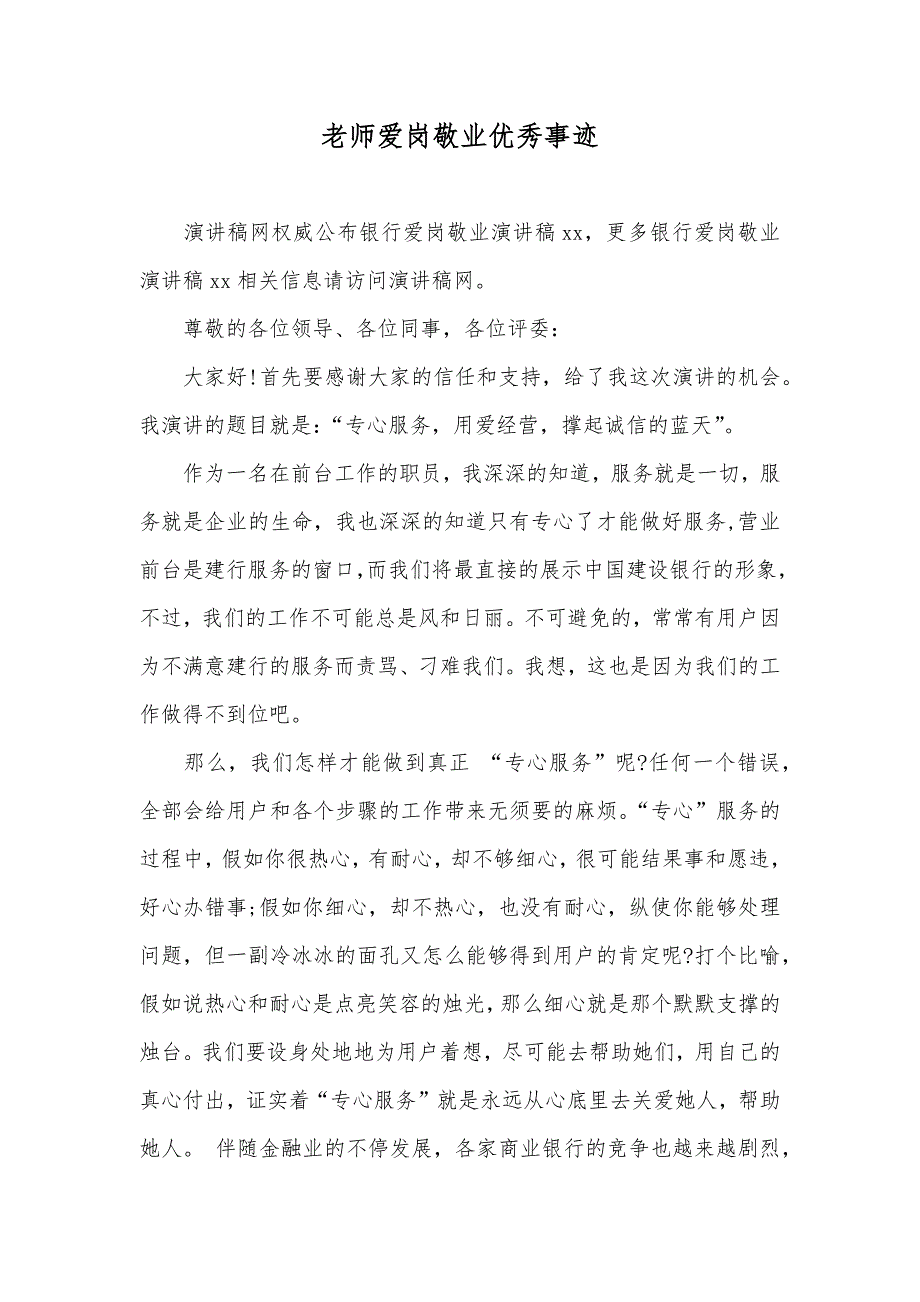 老师爱岗敬业优秀事迹
演讲稿网权威公布银行爱岗敬业演讲稿 xx，更多银行爱岗敬业
演讲稿 xx 相关信息请访问演讲稿网。
尊敬的各位领导、各位同事，各位评委：
大家好!首先要感谢大家的信任和支持，给了我这次演讲的机会。
我演讲的题目就是：“专心服务，用爱经营，撑起诚信的蓝天”。
作为一名在前台工作的职员，我深深的知道，服务就是一切，服
务就是企业的生命，我也深深的知道只有专心了才能做好服务,营业
前台是建行服务的窗口,而我们将最直接的展示中国建设银行的形象，
不过，我们的工作不可能总是风和日丽。不可避免的，常常有用户因
为不满意建行的服务而责骂、刁难我们。我想，这也是因为我们的工
作做得不到位吧。
那么，我们怎样才能做到真正 “专心服务”呢?任何一个错误，
全部会给用户和各个步骤的工作带来无须要的麻烦。“专心”服务的
过程中，假如你很热心，有耐心，却不够细心，很可能结果事和愿违，
好心办错事;假如你细心，却不热心，也没有耐心，纵使你能够处理
问题，但一副冷冰冰的面孔又怎么能够得到用户的肯定呢?打个比喻，
假如说热心和耐心是点亮笑容的烛光，那么细心就是那个默默支撑的
烛台。我们要设身处地地为用户着想，尽可能去帮助她们，用自己的
真心付出，证实着“专心服务”就是永远从心底里去关爱她人，帮助
她人。 伴随金融业的不停发展，各家商业银行的竞争也越来越剧烈，